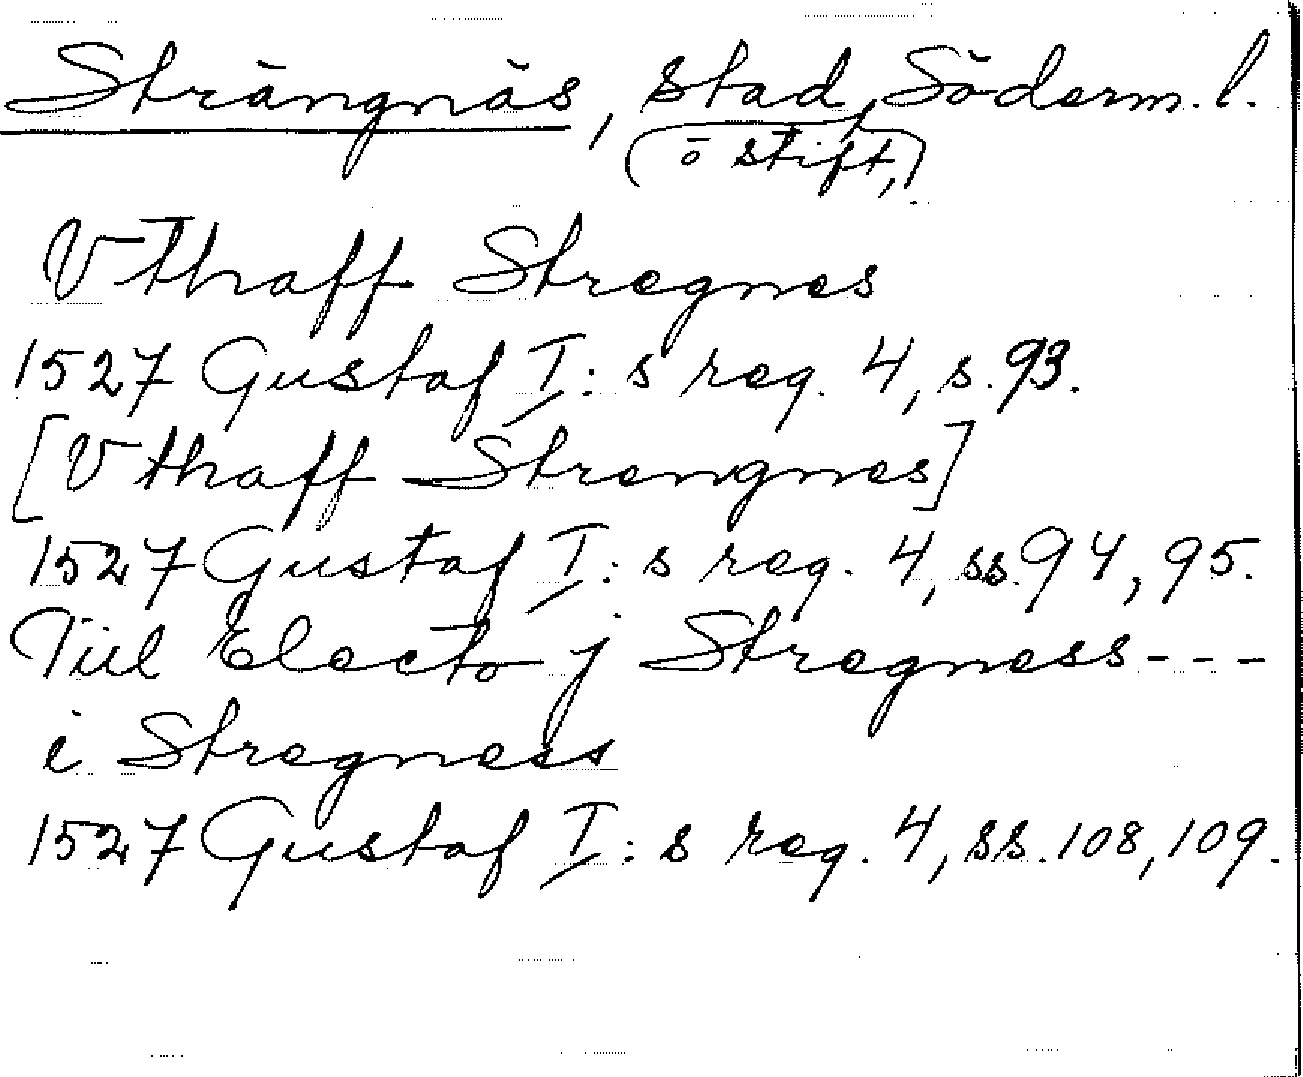 Strängnäs, stad, Söderm. l.
(o stift,)
Vthaff Stregnes
1527 Gustaf I:s reg. 4, s. 93.
[Vthaff Strengnes]
1527 Gustaf I:s reg. 4, ss. 94, 95.
Tiil Electo j Stregness - - -
i Stregness
1527 Gustaf I:s reg. 4, ss. 108, 109.